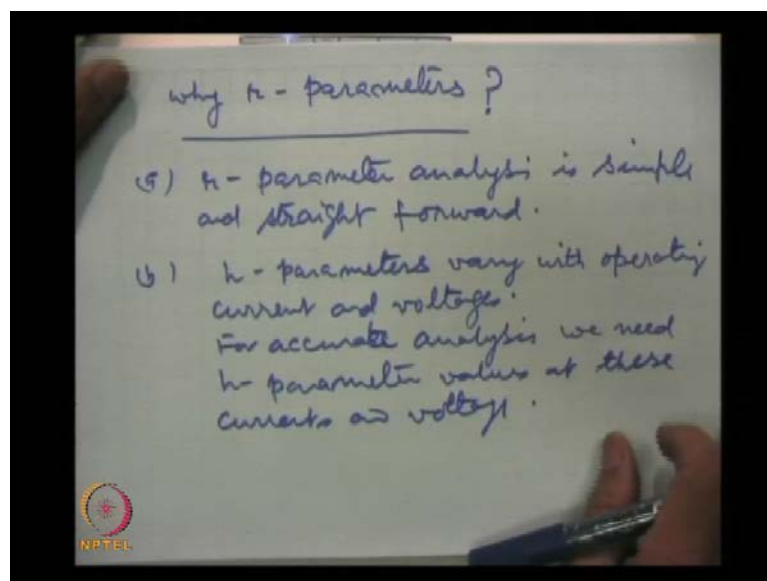 why r - parameters ?
(a) r - parameter analysis is simple
and straight forward.
(b) h - parameters vary with operating
current and voltages.
For accurate analysis we need
h - parameter values at these
currents and voltage.
NPTEL